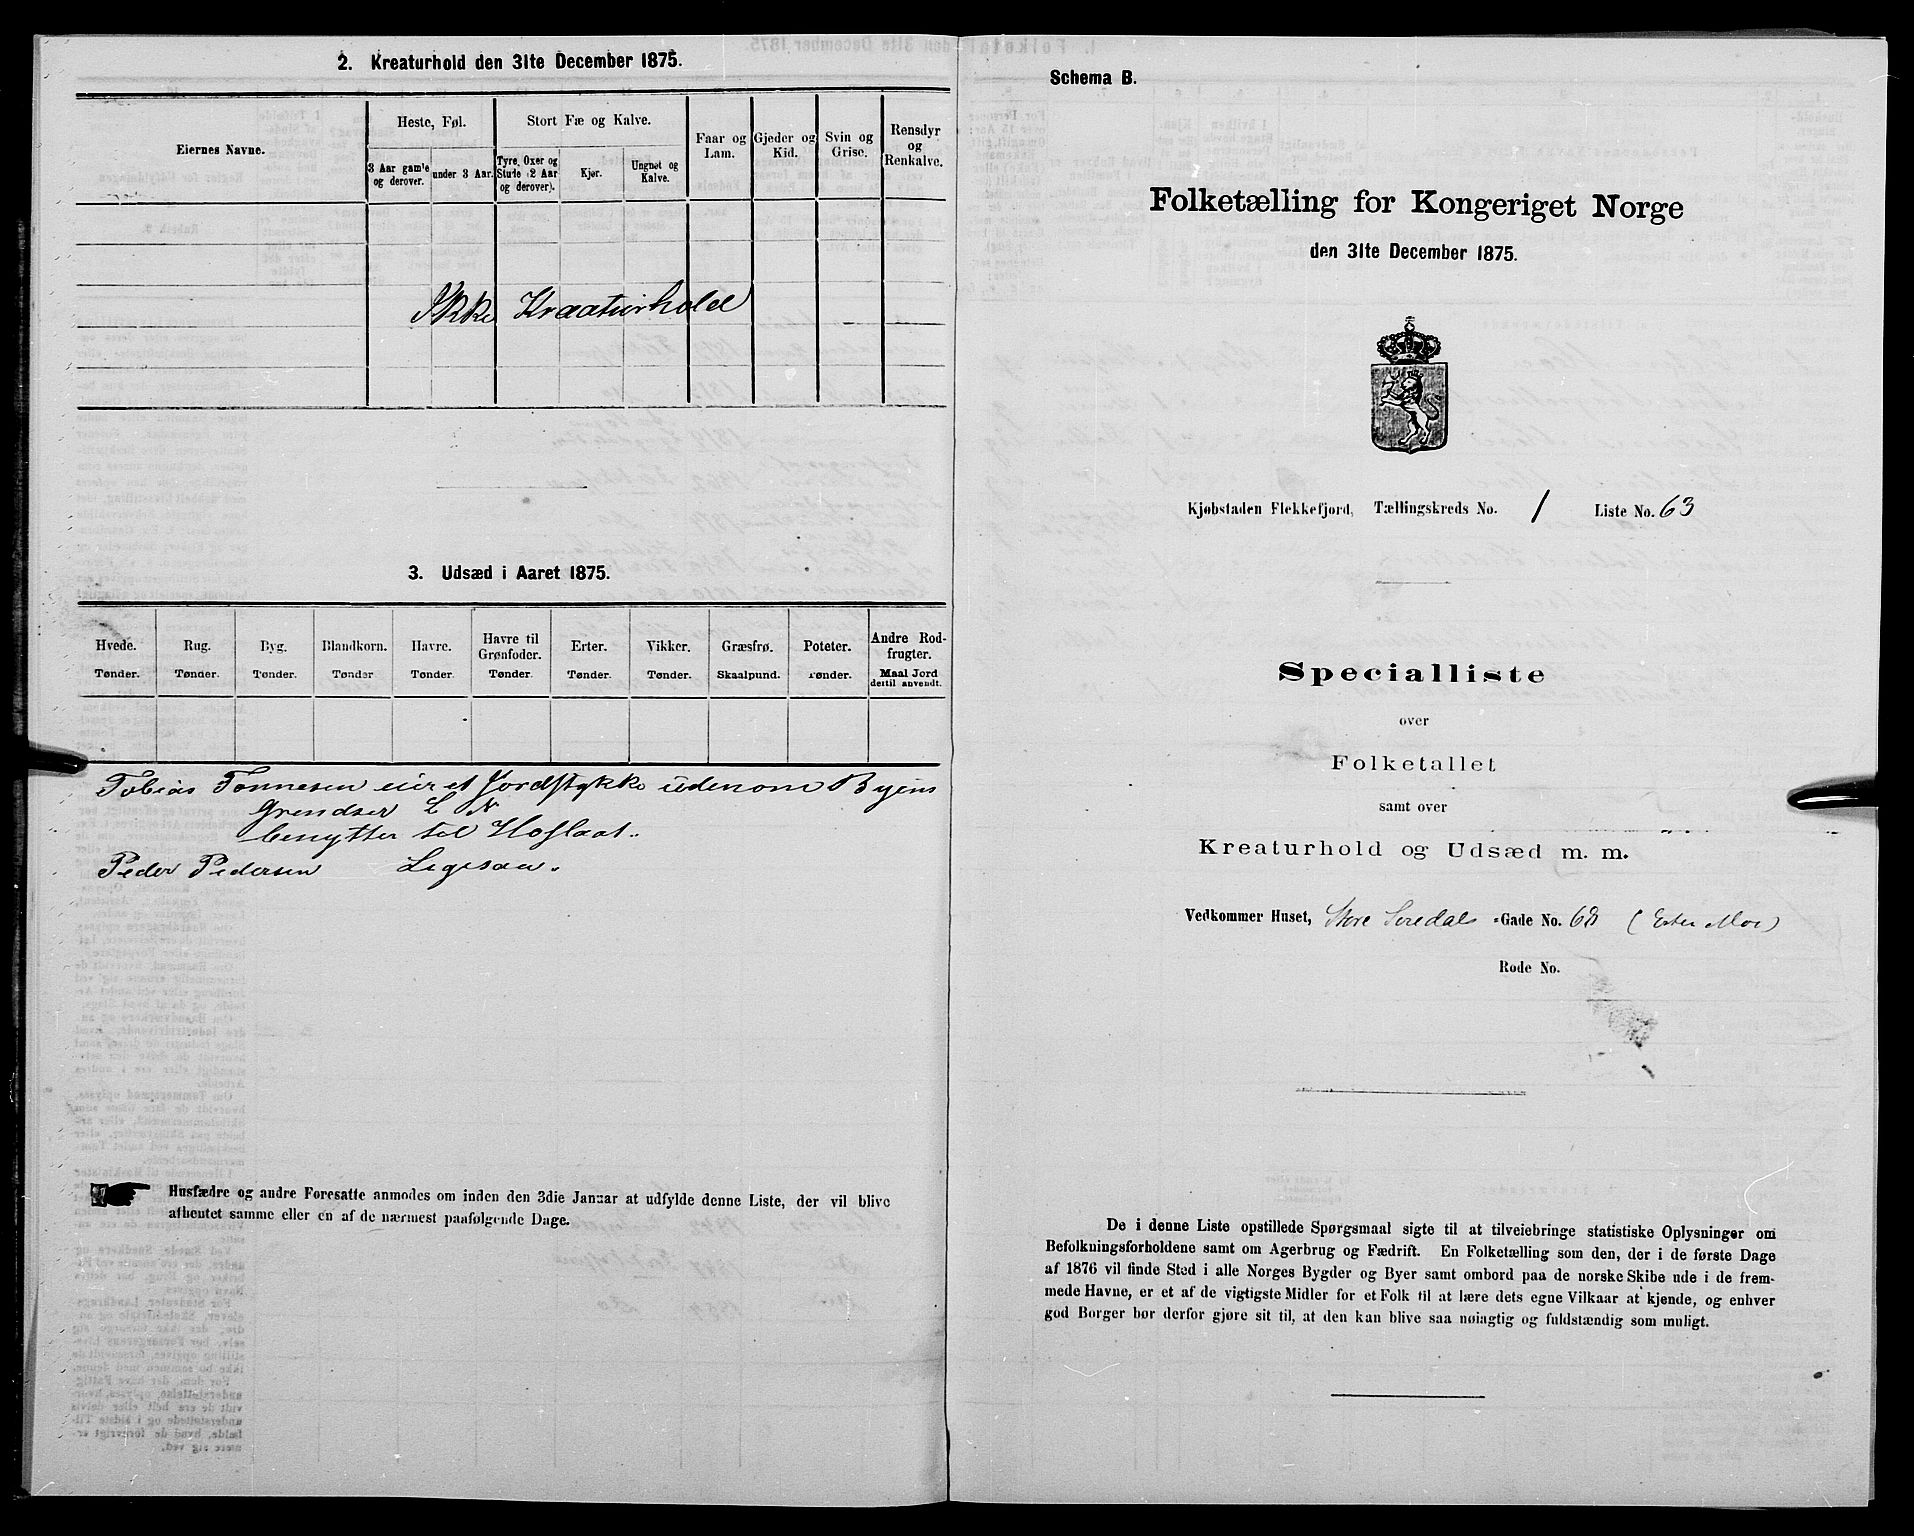 2. Kreaturhold den 31te December 1875.
Eiernes Navne.
Heste, Føl.
Stort Fæ og Kalve.
Faar og
Lam.
Gjeder og
Kid.
Svin og
Grise.
Rensdyr
og
Renkalve.
3 Aar gamle
og derover.
under 3 Aar.
Tyre, Oxer og
Stude (2 Aar
og derover).
Kjør.
Ungnøt og
Kalve.
Ikke Kraaturhold
3. Udsæd i Aaret 1875.
Hvede. Rug. Byg. Blandkorn. Havre. Havre til
Grønfoder. Erter. Vikker. Græsfrø. Poteter. Andre Rod-
frugter.
Tønder. Tønder. Tønder. Tønder Tønder. Tønder. Tønder. Tønder. Skaalpund. Tønder. Maal Jord
dertil anvendt.
Tobias Tønnesen eier et Jordstykke udenom Byens
Grendser
benytter til Høslaat.
Peder Pedersen Ligesaa.
Husfædre og andre Foresatte anmodes om inden den 3die Januar at udfylde denne Liste, der vil blive
afhentet samme eller en af de nærmest paafølgende Dage.
Schema B.
Folketælling for Kongeriget Norge
den 31te December 1875.
Kjøbstaden Flekkefjord, Tællingskreds No. 1 Liste No. 63
Specialliste
over
Folketallet
samt over
Kreaturhold og Udsæd m. m.
Vedkommer Huset, Store Siredals -Gade No. 68 (Ester Moe)
Rode No.
De i denne Liste opstillede Spørgsmaal sigte til at tilveiebringe statistiske Oplysninger om
Befolkningsforholdene samt om Agerbrug og Fædrift. En Folketælling som den, der i de første Dage
af 1876 vil finde Sted i alle Norges Bygder og Byer samt ombord paa de norske Skibe ude i de frem-
mede Havne, er et af de vigtigste Midler for et Folk til at lære dets egne Vilkaar at kjende, og enhver
god Borger bør derfor gjøre sit til, at den kan blive saa nøiagtig og fuldstændig som muligt.